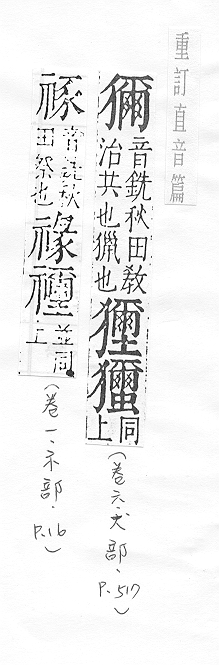 重訂直音篇
獮
音銑秋田教
治共也獵也
同
上
(卷六、犬部、P.517)
音銑秋
田祭也
禒禰
並同
上
(卷一、示部、P.16)